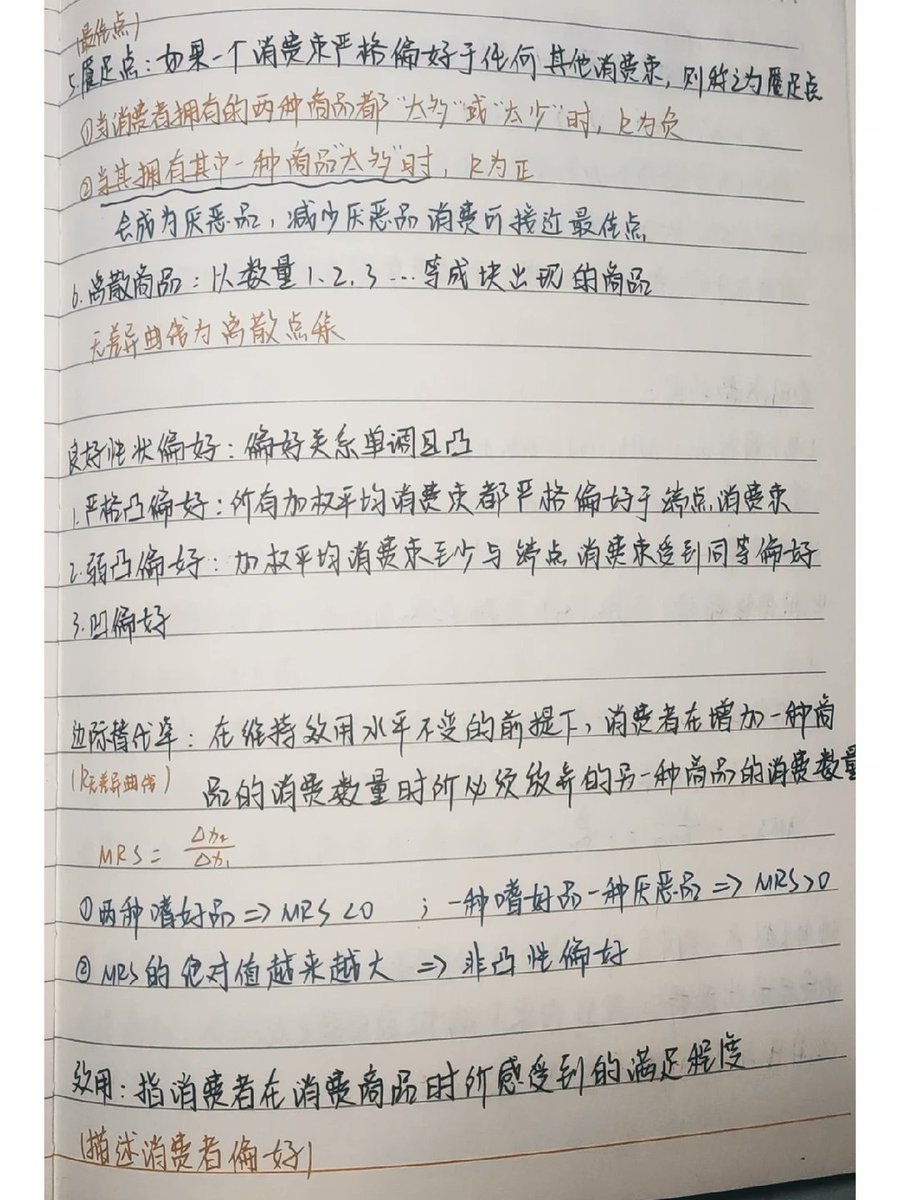 (最佳点)
5.餍足点:如果一个消费束严格偏好于任何其他消费束,则称之为餍足点
①当消费者拥有的两种商品都“太多”或“太少”时,k为负
②当其拥有其中一种商品“太多”时,k为正
会成为厌恶品,减少厌恶品消费可接近最佳点
6.离散商品:以数量1.2.3…等成块出现的商品
无差异曲线为离散点集
良好性状偏好:偏好关系单调且凸
1.严格凸偏好:所有加权平均消费束都严格偏好于端点消费束
2.弱凸偏好:加权平均消费束至少与端点消费束受到同等偏好
3.凹偏好
边际替代率:在维持效用水平不变的前提下,消费者在增加一种商
(k无差异曲线)
品的消费数量时所必须放弃的另一种商品的消费数量
MRS = Δx₂/Δx₁
①两种嗜好品⇒MRS<0 ;一种嗜好品一种厌恶品⇒MRS>0
②MRS的绝对值越来越大 ⇒非凸性偏好
效用:指消费者在消费商品时所感受到的满足程度
(描述消费者偏好)